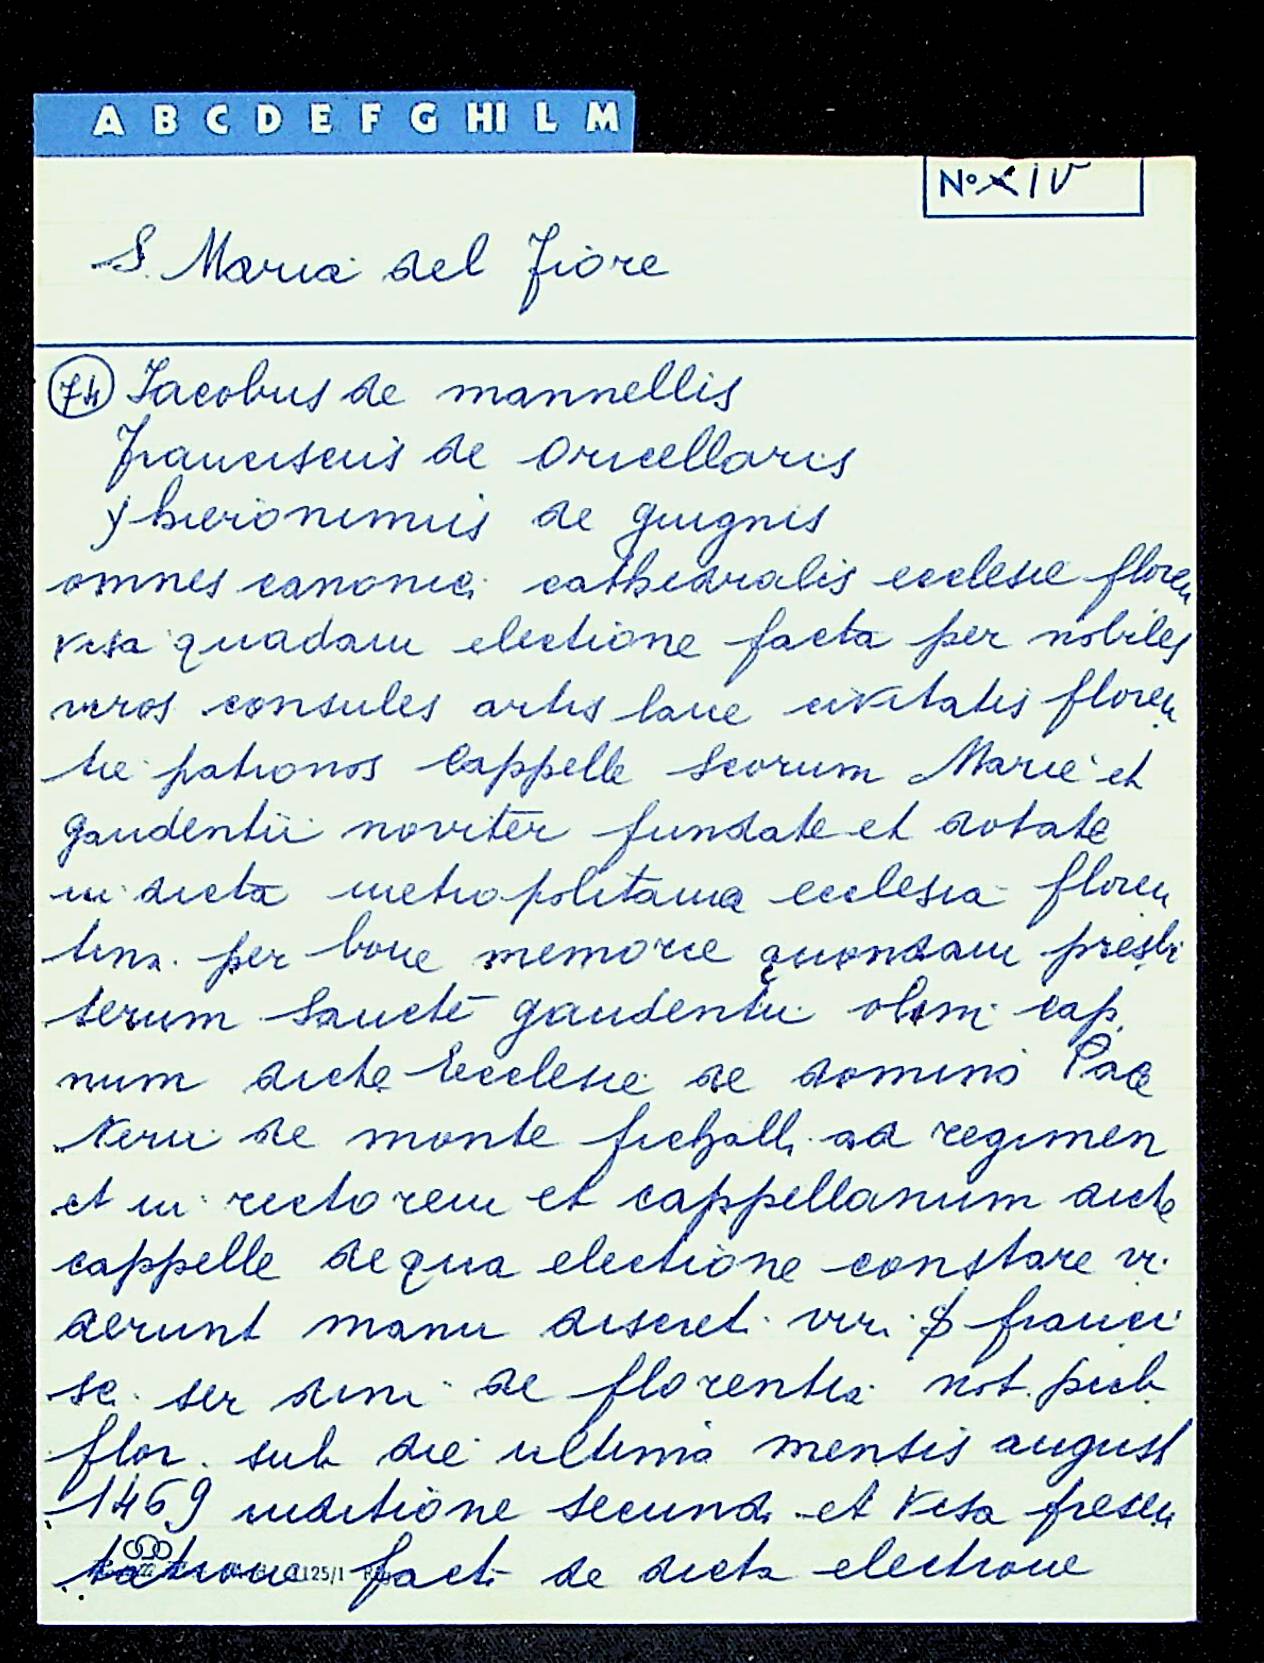 A B C D E F G HI L M
No XIV
S. Maria del Fiore
74 Jacobus de mannellis
Franciscus de Oricellaris
Jhieronimus de giugnis
omnes canonici cathedralis ecclesie floren
visa quadam electione facta per nobiles
viros consules artis lane civitatis floren
tie patronos Cappelle Scorum Marie et
gaudentii noviter fundate et dotate
in dicta metropolitana ecclesia floren
tina per bone memorie quondam presbi
terum Sancte gaudentii olim cap.
num dicte Ecclesie de domino Pace
Nerii de monte ad regimen
et in rectorem et cappellanum dicte
cappelle de qua electione constare vi
derunt manu discreti viri S franci
sci ser dini de florentia not. pub
flor. sub die ultimo mensis august
1469 inditione secunda et visa presen
tatione facti de dicta electione
125/1